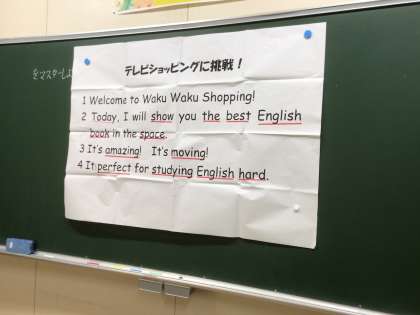 テレビショッピングに挑戦！
をマスターしよ
1 Welcome to Waku Waku Shopping!
2 Today, I will show you the best English
book in the space.
3 It's amazing! It's moving!
4 It perfect for studying English hard.